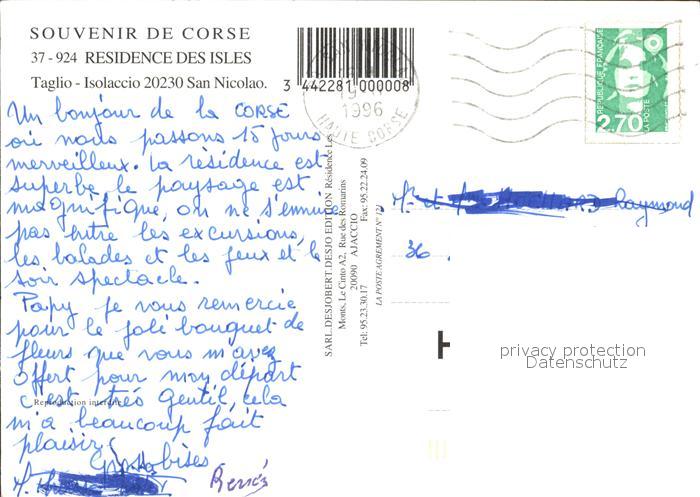 SOUVENIR DE CORSE
37 - 924 RESIDENCE DES ISLES
Taglio - Isolaccio 20230 San Nicolao.
3 442281 000008
1996
HAUTE CORSE
REPUBLIQUE FRANÇAISE
2,70
LA POSTE
Un bonjour de la CORSE
où nous passons 15 jours
merveilleux. La résidence est
superbe, le paysage est
magnifique, on ne s'ennuie
pas entre les excursions,
les balades et les jeux et le
soir spectacle.
Papy je vous remercie
pour le joli bouquet de
fleurs que vous m'avez
offert pour mon départ
c'est très gentil, cela
m'a beaucoup fait
plaisir.
Reproduction interdite
SARL.DESJOBERT.DESJO EDITION Résidence Les
Monts. Le Cinto A2, Rue des Romarins
20090 AJACCIO
Tel: 95.23.30.17 Fax: 95.22.24.09
LA POSTE AGREMENT N°
et Raymond
36
privacy protection
Datenschutz